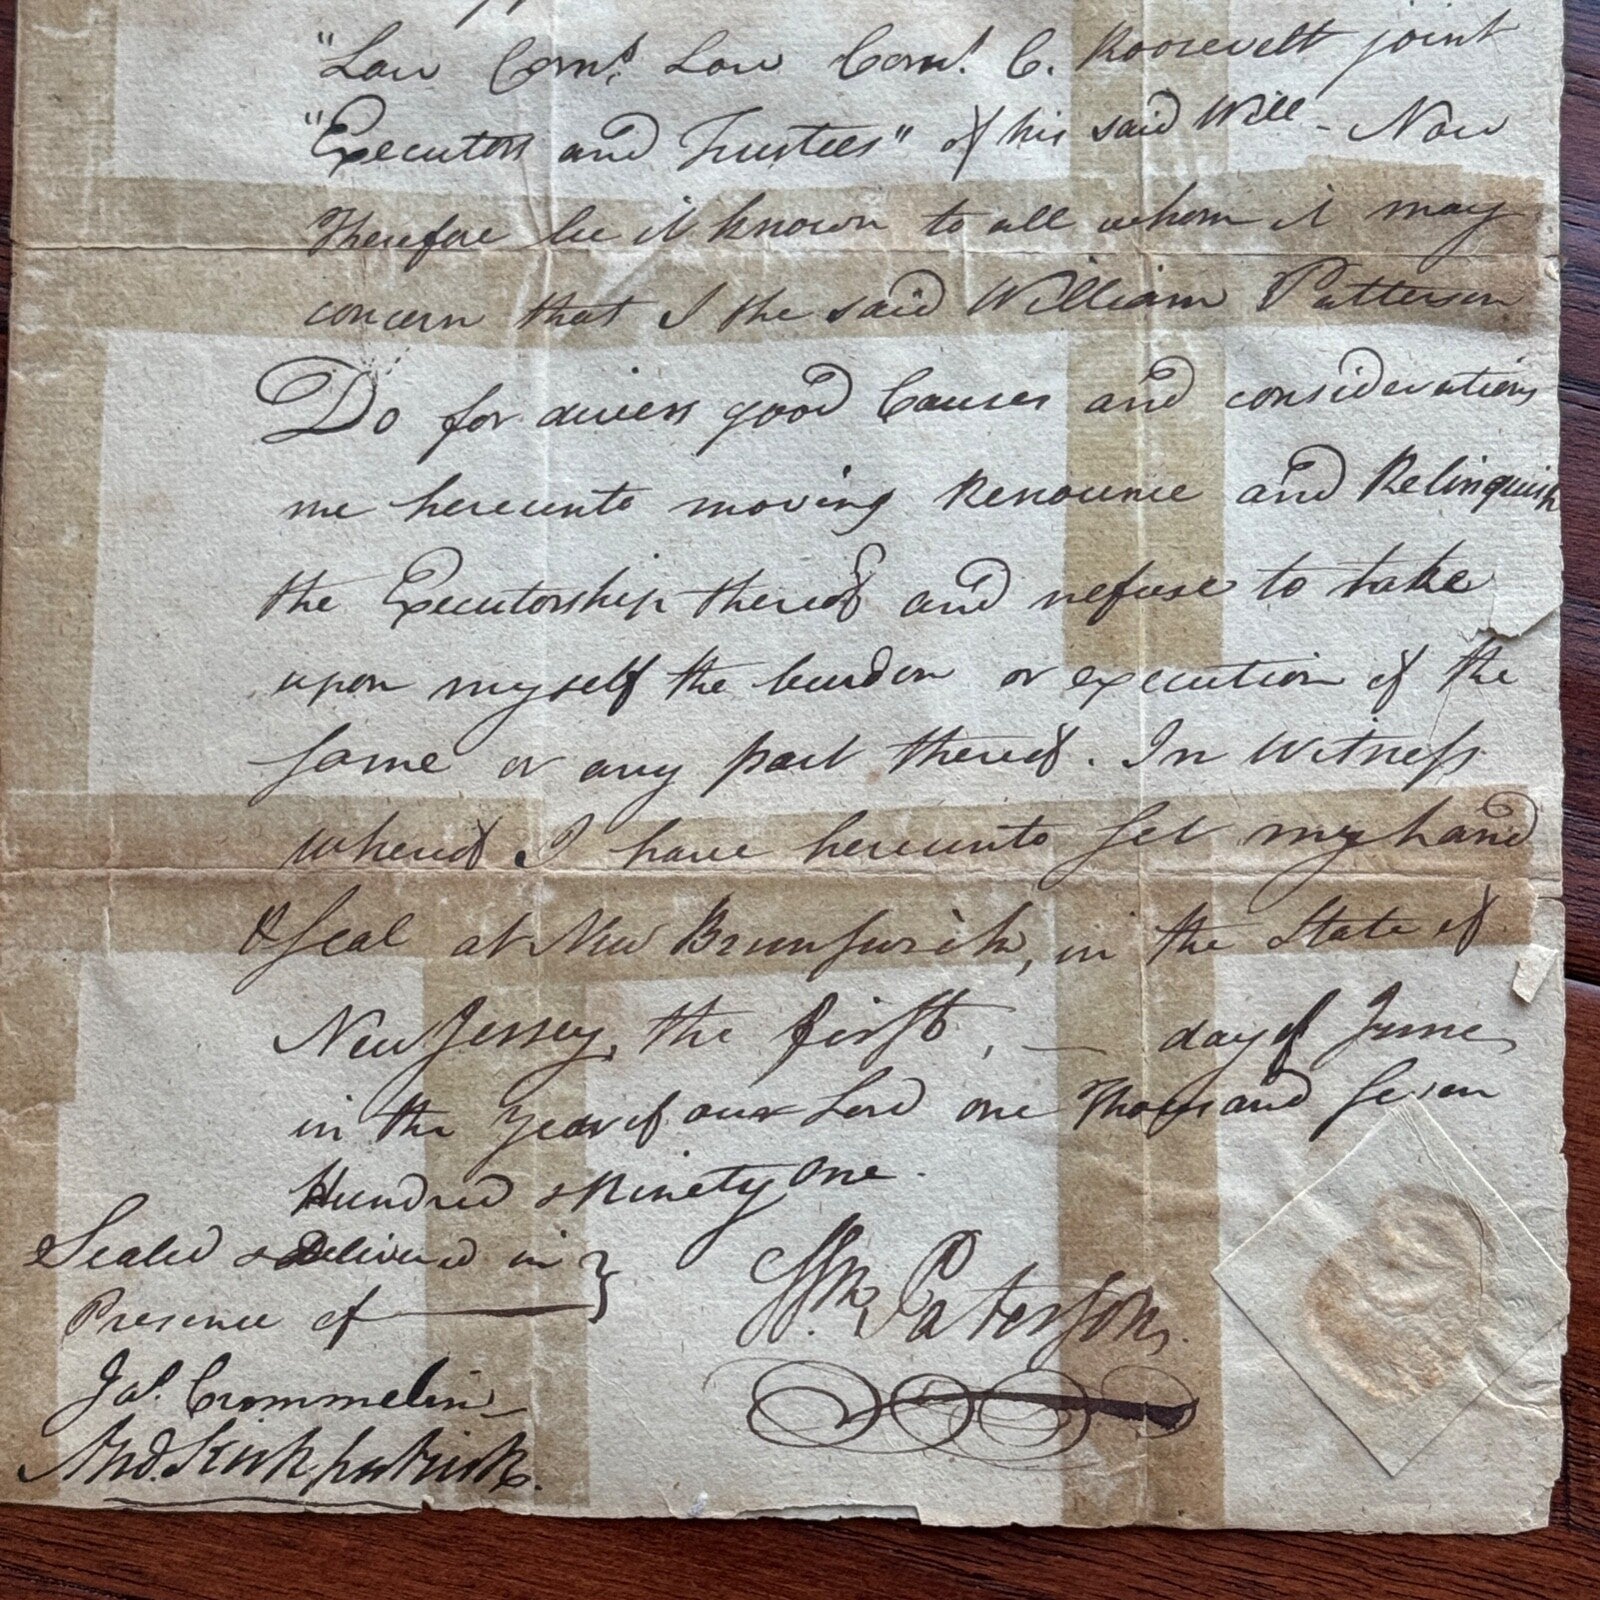 "Low Corn.s Low Corn.s C. Roosevelt joint
"Executors and Trustees" of his said Will - Now
Therefore be it known to all whom it may
concern that I the said William Patterson
Do for divers good Causes and considerations
me hereunto moving Renounce and Relinquish
the Executorship thereof and refuse to take
upon myself the burden or execution of the
same or any part thereof. In Witness
whereof I have hereunto set my hand
& Seal at New Brunswick, in the State of
New Jersey, the first, — day of June
in the Year of our Lord one Thousand Seven
Hundred & Ninety One.
Sealed & Delivered in }
Presence of
Wm. Paterson.
Ja.s Crommelin
And. Kirkpatrick.